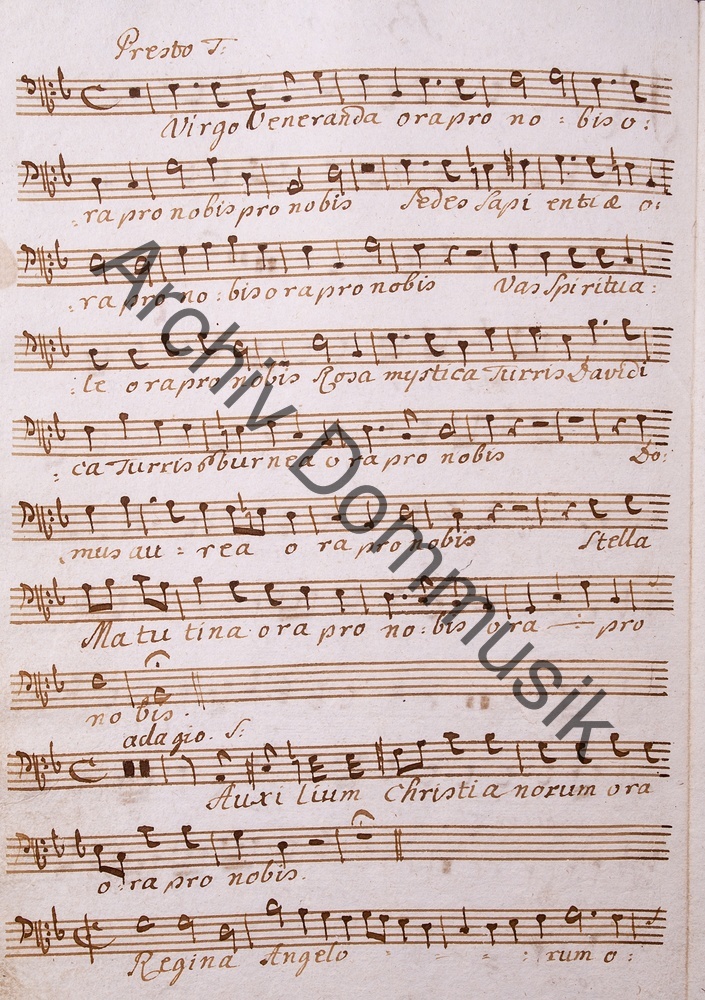 Presto T:
Virgo Veneranda ora pro no = bis o:
:ra pro nobis pro nobis Sedes Sapi entiæ o:
:ra pro no: bis ora pro nobis Vas Spiritua:
:le ora pro nobis Rosa mystica Turris Davidi
:ca Turris eburnea ora pro nobis Do:
:mus au = rea o ra pro nobis Stella
Matu tina ora pro no: bis ora pro
no bis.
adagio. S:
Auxi lium Christia norum ora
o:ra pro nobis.
Regina Angelo - - - : rum o:
Archiv Dommusik